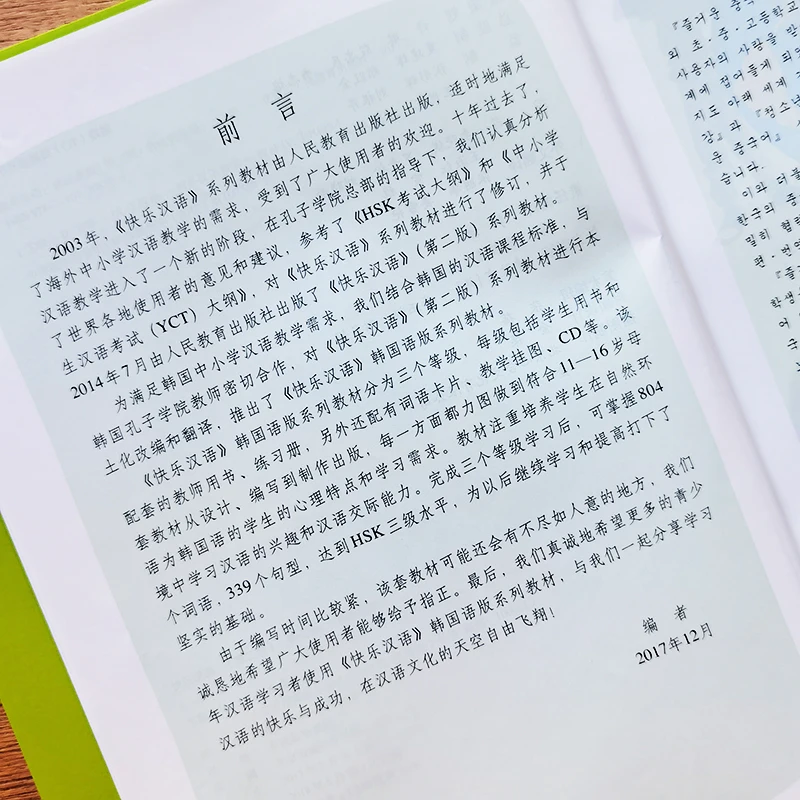 前言
2003年，《快乐汉语》系列教材由人民教育出版社出版，适时地满足
了海外中小学汉语教学的需求，受到了广大使用者的欢迎。十年过去了，
汉语教学进入了一个新的阶段，在孔子学院总部的指导下，我们认真分析
了世界各地使用者的意见和建议，参考了《HSK考试大纲》和《中小学
生汉语考试（YCT）大纲》，对《快乐汉语》系列教材进行了修订，并于
2014年7月由人民教育出版社出版了《快乐汉语》（第二版）系列教材。
为满足韩国中小学汉语教学需求，我们结合韩国的汉语课程标准，与
韩国孔子学院教师密切合作，对《快乐汉语》（第二版）系列教材进行本
土化改编和翻译，推出了《快乐汉语》韩国语版系列教材。
《快乐汉语》韩国语版系列教材分为三个等级，每级包括学生用书和
配套的教师用书、练习册，另外还配有词语卡片、教学挂图、CD等。该
套教材从设计、编写到制作出版，每一方面都力图做到符合11—16岁母
语为韩国语的学生的心理特点和学习需求。教材注重培养学生在自然环
境中学习汉语的兴趣和汉语交际能力。完成三个等级学习后，可掌握804
个词语，339个句型，达到HSK三级水平，为以后继续学习和提高打下了
坚实的基础。
由于编写时间比较紧，该套教材可能还会有不尽如人意的地方，我们
诚恳地希望广大使用者能够给予指正。最后，我们真诚地希望更多的青少
年汉语学习者使用《快乐汉语》韩国语版系列教材，与我们一起分享学习
汉语的快乐与成功，在汉语文化的天空自由飞翔！
编者
2017年12月
『즐거운 중
의 초·중·고등학교
사용자의 사랑을 받
제에 접어들게 되
지도 아래 세계
강』과 『청소년
운 중국어』
습니다.
이와 더불
한국의 중
밀히 협력
편·번역
『즐
학생